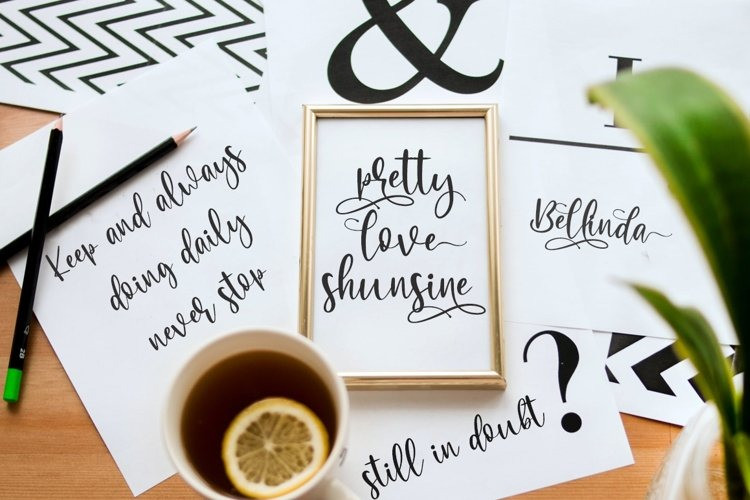 &
Keep and always
doing daily
never stop
pretty
love
shunsine
Bellinda
still in doubt
?